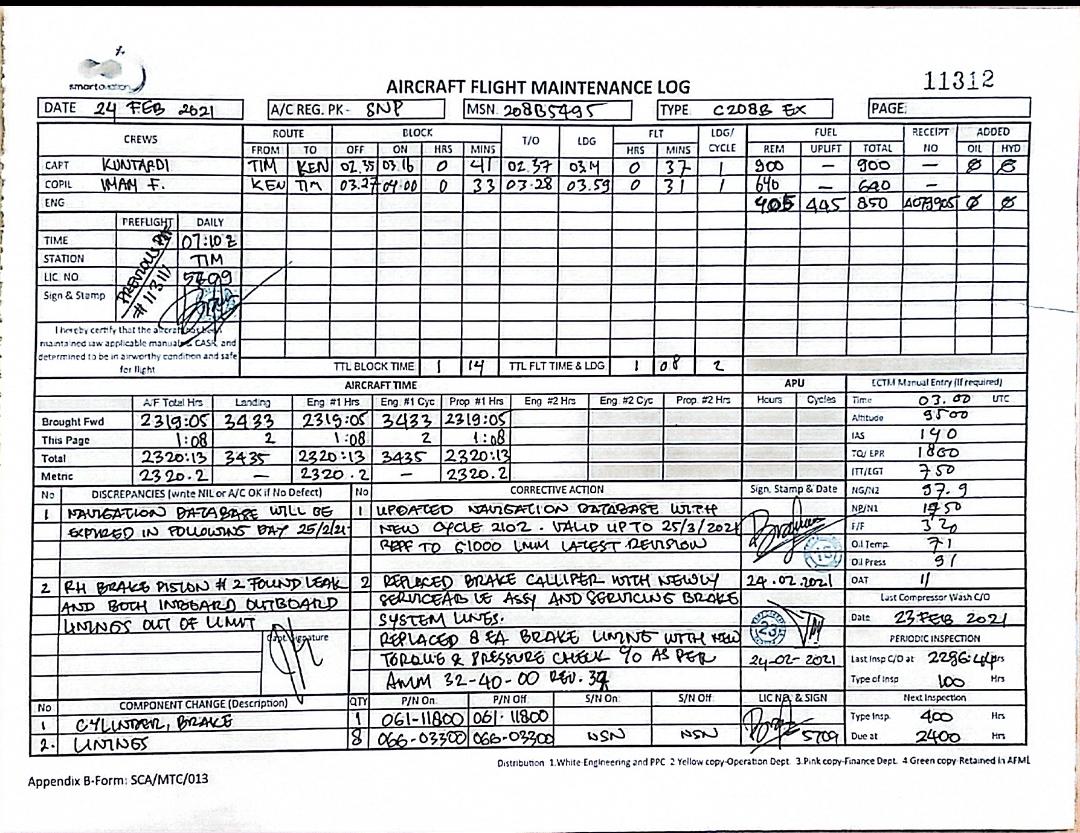 smartaviation
AIRCRAFT FLIGHT MAINTENANCE LOG
11312
DATE 24 FEB 2021 A/C REG. PK- SNP MSN. 208B5495 TYPE C208B EX PAGE:
CREWS ROUTE BLOCK T/O LDG FLT LDG/ CYCLE FUEL RECEIPT NO ADDED
FROM TO OFF ON HRS MINS HRS MINS REM UPLIFT TOTAL OIL HYD
CAPT KUNTARDI TIM KEN 02.35 03.16 0 41 02.37 03.14 0 37 1 900 — 900 — Ø Ø
COPIL IMAM F. KEN TIM 03.27 04.00 0 33 03-28 03.59 0 31 1 640 — 640 —
ENG 405 445 850 A073905 Ø Ø
PREFLIGHT DAILY
TIME 07:10 Z
STATION TIM
LIC NO 5709
Sign & Stamp
PREVIOUS
I hereby certify that the aircraft has been
maintained iaw applicable manual & CASR and
determined to be in airworthy condition and safe
for flight
TTL BLOCK TIME 1 14 TTL FLT TIME & LDG 1 08 2
AIRCRAFT TIME APU ECTM Manual Entry (If required)
A/F Total Hrs Landing Eng. #1 Hrs Eng. #1 Cyc Prop. #1 Hrs Eng. #2 Hrs Eng. #2 Cyc Prop. #2 Hrs Hours Cycles Time 03.00 UTC
Brought Fwd 2319:05 3433 2319:05 3433 2319:05 Altitude 9500
This Page 1:08 2 1:08 2 1:08 IAS 140
Total 2320:13 3435 2320:13 3435 2320:13 TQ/ EPR 1800
Metric 2320.2 — 2320.2 — 2320.2 ITT/EGT 750
No DISCREPANCIES (write NIL or A/C OK if No Defect) No CORRECTIVE ACTION Sign, Stamp & Date NG/N2 97.9
1 NAVIGATION DATABASE WILL BE 1 UPDATED NAVIGATION DATABASE WITH NP/N1 1750
EXPIRED IN FOLLOWING DAY 25/2/21 NEW CYCLE 2102. VALID UP TO 25/3/2021 F/F 320
REFF TO G1000 LMM LATEST REVISION Oil Temp 71
Oil Press 91
2 RH BRAKE PISTON #2 FOUND LEAK 2 REPLACED BRAKE CALLIPER WITH NEWLY 24.02.2021 OAT 11
AND BOTH INBOARD OUTBOARD SERVICEABLE ASSY AND SERVICING BRAKE Last Compressor Wash C/O
LININGS OUT OF LIMIT SYSTEM LINES. Date 23 FEB 2021
Capt. Signature REPLACED 8 EA BRAKE LINING WITH NEW 23 PERIODIC INSPECTION
TORQUE & PRESSURE CHECK C/O AS PER 24-02-2021 Last Insp C/O at 2286:44 Hrs
AMM 32-40-00 REV. 34 Type of Insp 100 Hrs
No COMPONENT CHANGE (Description) QTY P/N On: P/N Off S/N On: S/N Off LIC NO. & SIGN Next Inspection
1 CYLINDER, BRAKE 1 061-11800 061-11800 Type Insp. 400 Hrs
2. LININGS 8 066-03300 066-03300 NSN NSN 5709 Due at 2400 Hrs
Distribution 1.White-Engineering and PPC 2 Yellow copy-Operation Dept. 3.Pink copy-Finance Dept. 4 Green copy-Retained in AFML
Appendix B-Form: SCA/MTC/013